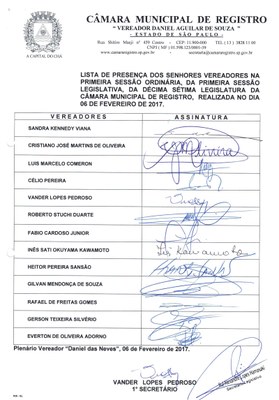 CÂMARA MUNICIPAL DE REGISTRO
"VEREADOR DANIEL AGUILAR DE SOUZA"
- ESTADO DE SÃO PAULO -
A CAPITAL DO CHÁ
LISTA DE PRESENÇA DOS SENHORES VEREADORES NA
PRIMEIRA SESSÃO ORDINÁRIA, DA PRIMEIRA SESSÃO
LEGISLATIVA, DA DÉCIMA SÉTIMA LEGISLATURA DA
CÂMARA MUNICIPAL DE REGISTRO, REALIZADA NO DIA
06 DE FEVEREIRO DE 2017.
VEREADORES ASSINATURA
SANDRA KENNEDY VIANA
CRISTIANO JOSÉ MARTINS DE OLIVEIRA
LUIS MARCELO COMERON
CÉLIO PEREIRA
VANDER LOPES PEDROSO
ROBERTO STUCHI DUARTE
FABIO CARDOSO JUNIOR
INÊS SATI OKUYAMA KAWAMOTO
HEITOR PEREIRA SANSÃO
GILVAN MENDONÇA DE SOUZA
RAFAEL DE FREITAS GOMES
GERSON TEIXEIRA SILVÉRIO
EVERTON DE OLIVEIRA ADORNO
Plenário Vereador "Daniel das Neves", 06 de Fevereiro de 2017.
VANDER LOPES PEDROSO
1º SECRETÁRIO